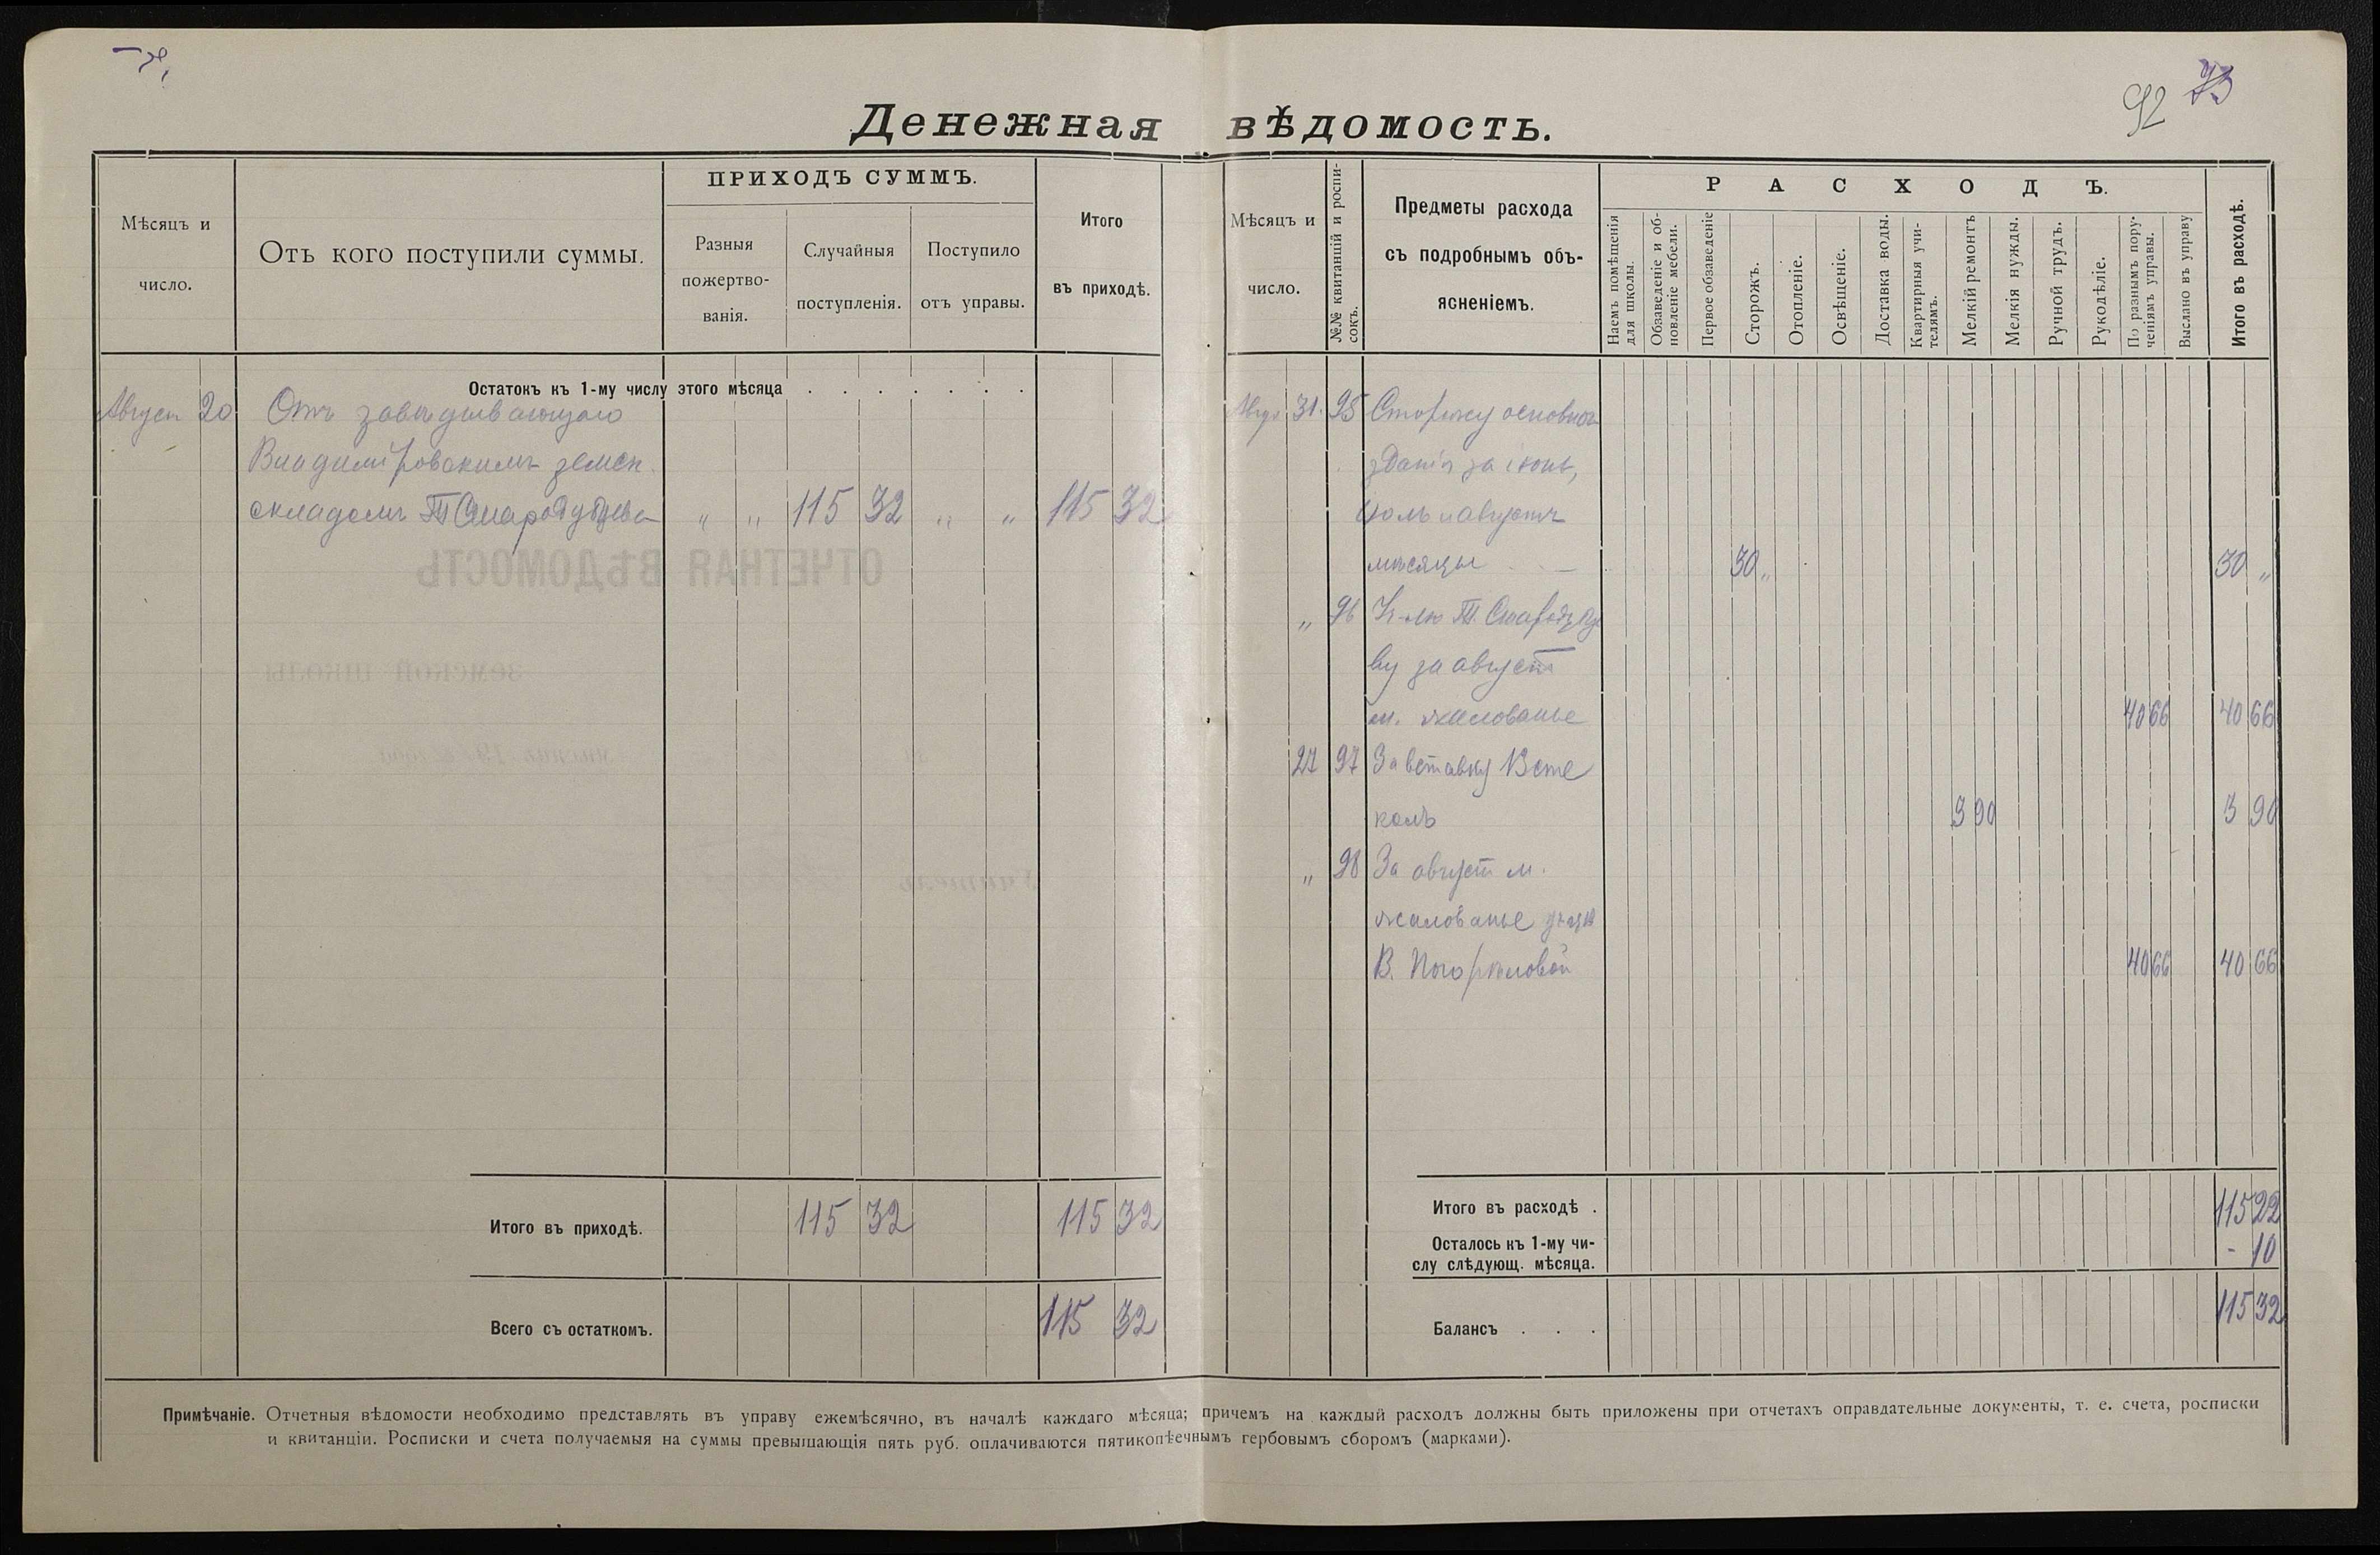 92 73
Денежная вѣдомость.
Мѣсяцъ и число.
Отъ кого поступили суммы.
ПРИХОДЪ СУММЪ.
Разныя пожертво-
ванія.
Случайныя поступленія.
Поступило отъ управы.
Итого въ приходѣ.
Остатокъ къ 1-му числу этого мѣсяца . . . . . . .
Август 20 Отъ завѣдывающаго
Владиміровскимъ земск.
складомъ Т Стародубцева „ „ 115 32 „ „ 115 32
Итого въ приходѣ. 115 32 115 32
Всего съ остаткомъ. 115 32
Мѣсяцъ и число.
№№ квитанцій и роспи-
сокъ.
Предметы расхода
съ подробнымъ объ-
ясненіемъ.
РАСХОДЪ.
Наемъ помѣщенія
для школы.
Обзаведеніе и об-
новленіе мебели.
Первое обзаведеніе
Сторожъ.
Отопленіе.
Освѣщеніе.
Доставка воды.
Квартирныя учи-
телямъ.
Мелкій ремонтъ
Мелкія нужды.
Ручной трудъ.
Рукодѣліе.
По разнымъ пору-
ченіямъ управы.
Выслано въ управу
Итого въ расходѣ.
Авгус 31. 95 Сторожу основного
зданія за іюнь,
іюль и августъ
мѣсяцы 30 „ 30 „
„ 96 У-лю Т. Стародубце
ву за август
м. жалованье 40 66 40 66
27 97 За вставку 13 сте
колъ 3 90 3 90
„ 98 За август м.
жалованье
В. Погорѣловой 40 66 40 66
Итого въ расходѣ . 115 22
Осталось къ 1-му чи-
слу слѣдующ. мѣсяца. - 10
Балансъ . . . 115 32
Примѣчаніе. Отчетныя вѣдомости необходимо представлять въ управу ежемѣсячно, въ началѣ каждаго мѣсяца; причемъ на каждый расходъ должны быть приложены при отчетахъ оправдательные документы, т. е. счета, росписки
и квитанціи. Росписки и счета получаемыя на суммы превышающія пять руб. оплачиваются пятикопѣечнымъ гербовымъ сборомъ (марками).